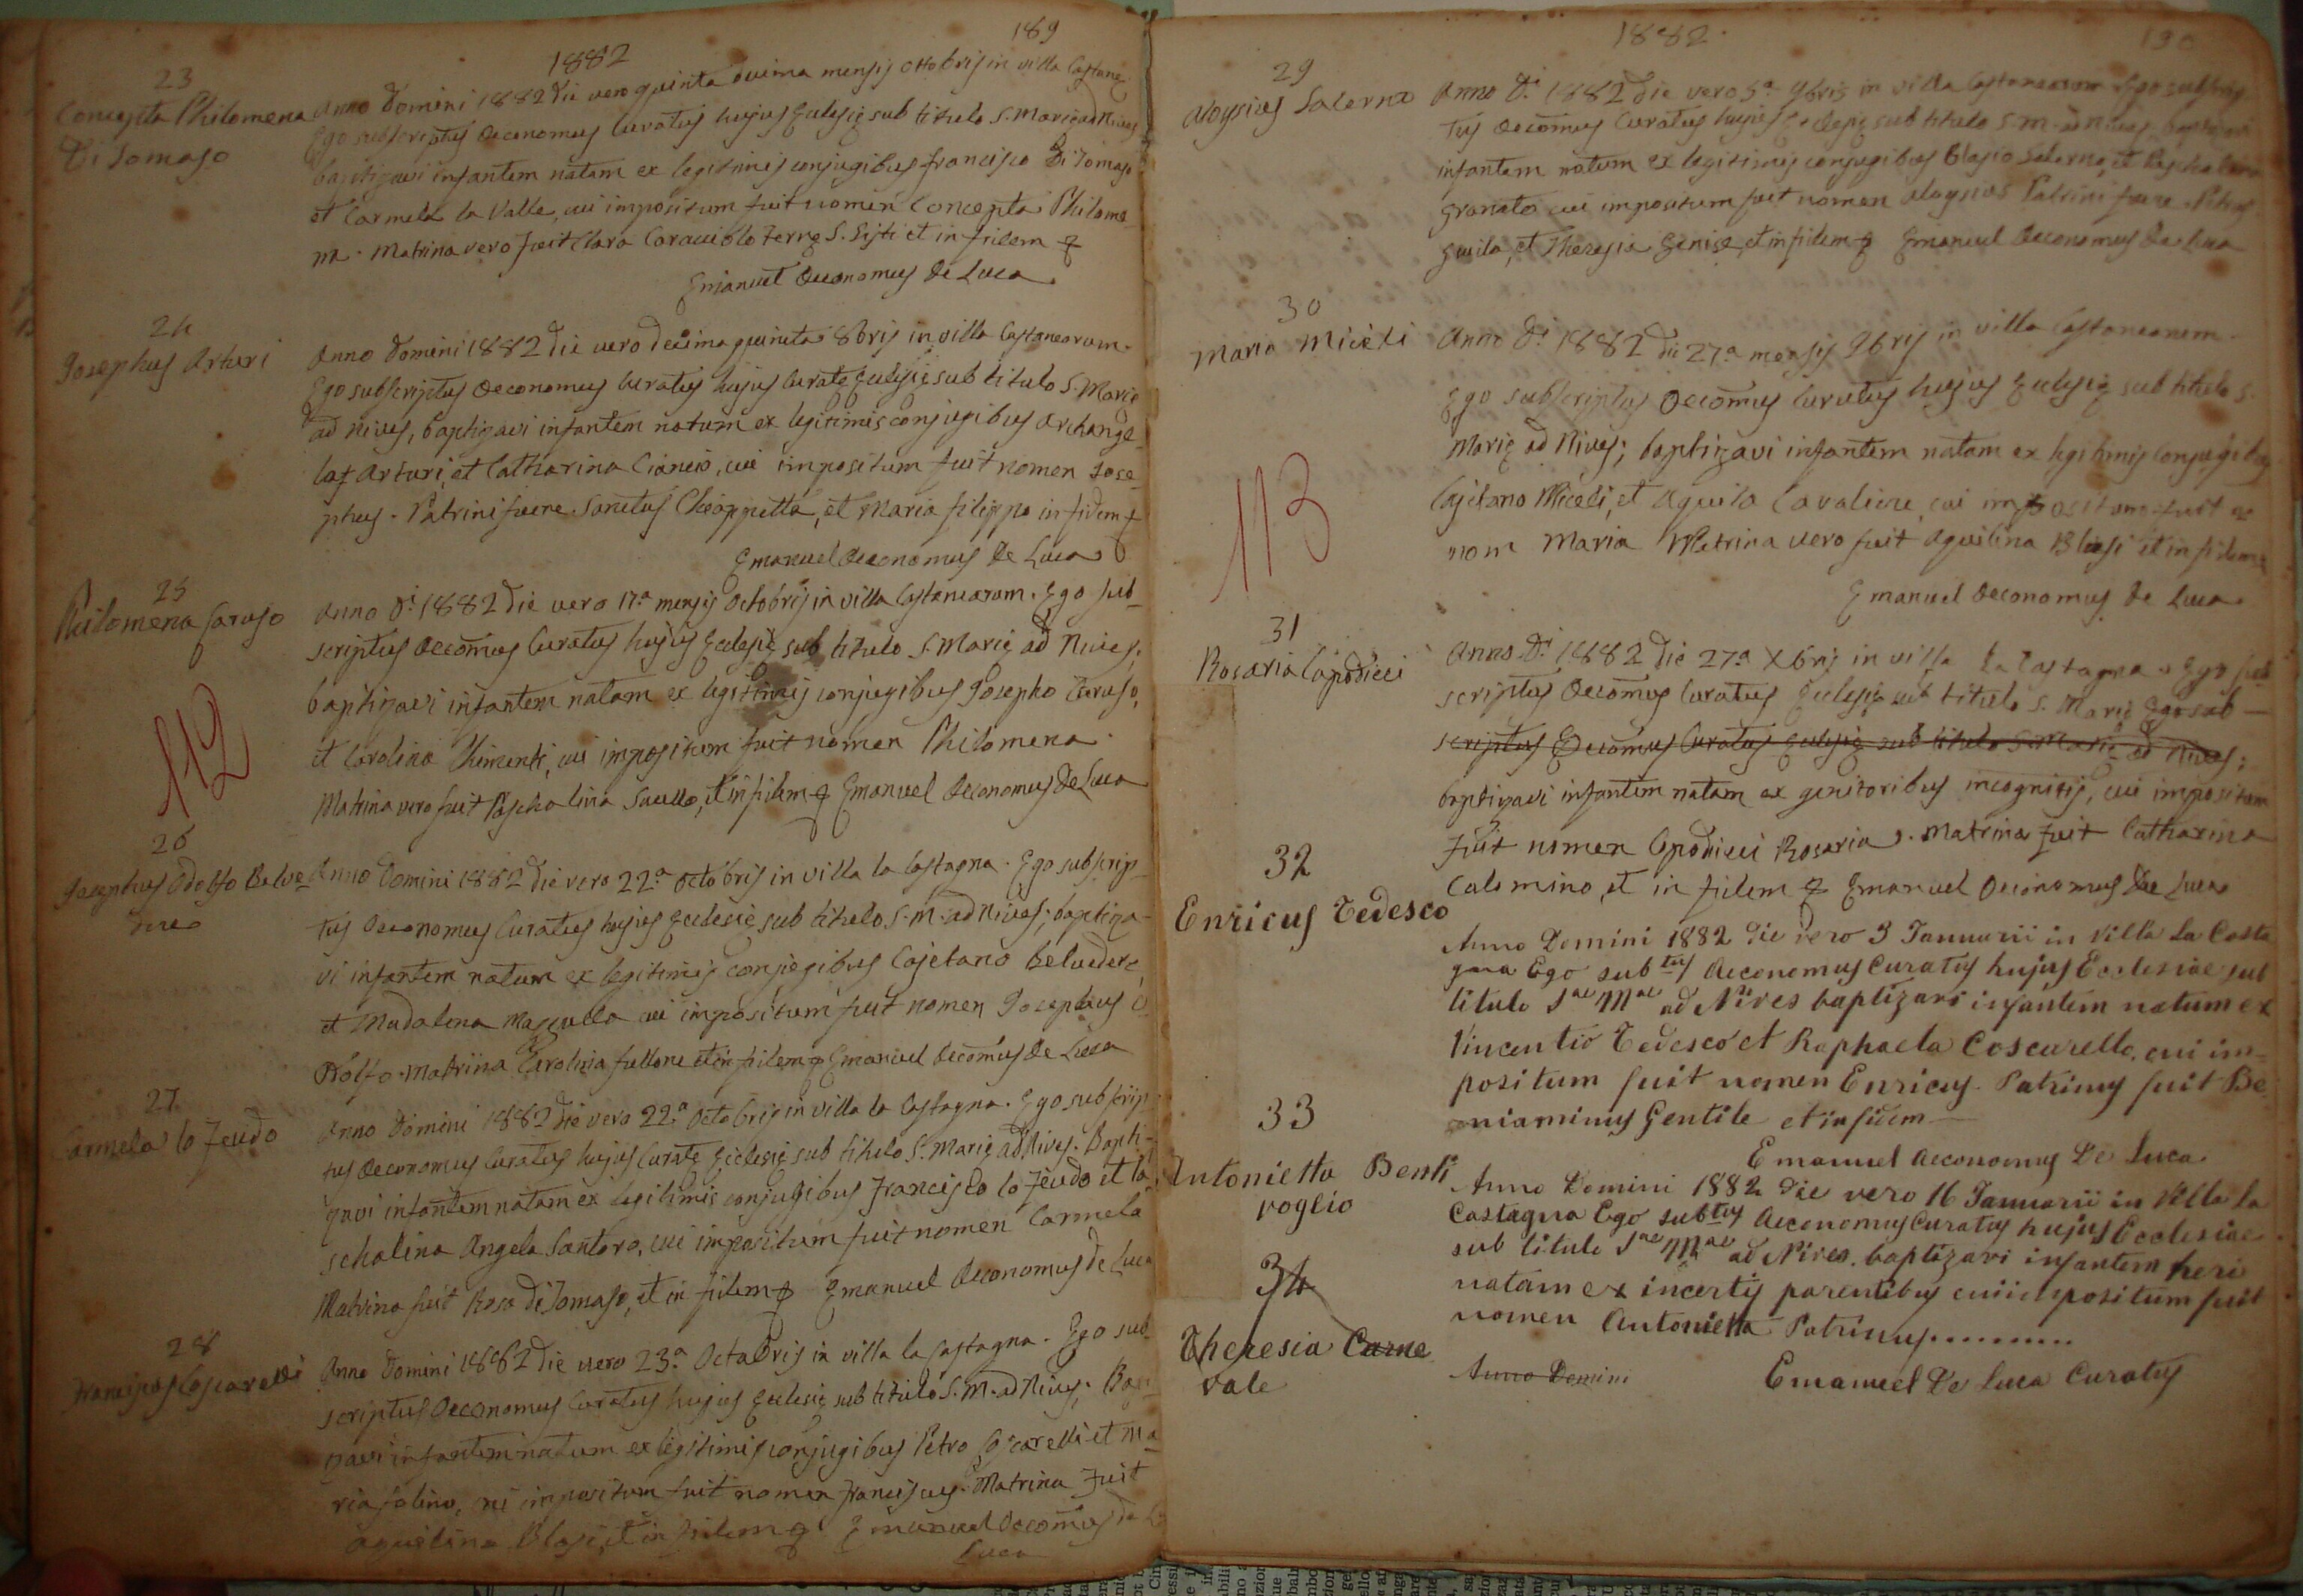 189
1882
23
Concepta Philomena
Di Tomaso
Anno Domini 1882 die vero quinta decima mensis Ottobris in villa Castane
Ego subscriptus Oeconomus Curatus hujus Eclesię sub titulo S. Marię ad Nives
baptizavi infantem natam ex legitimis conjugibus Francisco Di Tomaso
et Carmela la Valle, cui impositum fuit nomen Concepta Philome
na. Matrina vero fuit Clara Caracciolo Terre S. Sisti et in fidem
Emanuel Oeconomus De Luca
24
Josephus Arturi
Anno Domini 1882 die vero decima quinta 8bris in villa Castanearum
Ego subscriptus Oeconomus Curatus hujus Curatę Eclesię sub titulo S. Marię
ad Nives, baptizavi infantem natum ex legitimis conjugibus Archange
lo Arturi, et Catharina Cioncio, cui impositum fuit nomen Jose
phus. Patrini fuere Santus Chiappetta, et Maria Filippo in fidem
Emanuel Oeconomus De Luca
25
Philomena Caruso
Anno D.i 1882 die vero 17.a mensis Octobris in villa Castanearum. Ego sub
scriptus Oecomus Curatus hujus Ecclesię sub titulo S. Marię ad Nives,
baptizavi infantem natam ex legitimis conjugibus Josepho Caruso,
et Carolina Chimenti, cui impositum fuit nomen Philomena.
Matrina vero fuit Paschalina Sucello, et in fidem Emanuel Oeconomus De Luca
112
26
Josephus Odolfo Belve
dere
Anno Domini 1882 die vero 22.a Octobris in villa la Castagna. Ego subscrip
tus Oeconomus Curatus hujus Ecclesię sub titulo S. M. ad Nives, baptiza
vi infantem natum ex legitimis conjugibus Cajetano Belvedere,
et Madalena Mazzulla cui impositum fuit nomen Josephus O
dolfo. Matrina Carolina Fullone et in fidem Emanuel Oecomus De Luca
27
Carmela lo Feudo
Anno Domini 1882 die vero 22.a Octobris in villa la Castagna. Ego subscrip
tus Oeconomus Curatus hujus Curatę Ecclesię sub titulo S. Marię ad Nives. Bapti
zavi infantem natam ex legitimis conjugibus Francisco lo Feudo et Pa
schalina Angela Santoro, cui impositum fuit nomen Carmela
Matrina fuit Rosa di Tomaso, et in fidem Emanuel Oeconomus De Luca
28
Franciscus Coscarelli
Anno Domini 1882 die vero 23.a Octabris in villa la Castagna. Ego sub
scriptus Oeconomus Curatus hujus Eclesię sub titulo S. M. ad Nives. Bap
zavi infantem natum ex legitimis conjugibus Petro Coscarelli et Ma
ria Folino, cui impositum fuit nomen Franciscus. Matrina fuit
Aquilina Blasi, et in fidem Emanuel Oecomus de
Luca
1882
190
29
Aloysius Salerno
Anno D.i 1882 die vero 5.a 9bris in villa Castanearum Ego subscrip
tus Oecomus Curatus hujus Eclesię sub titulo S. M. ad Nives baptizavi
infantem natum ex legitimis conjugibus Blasio Salerno, et Paschalina
Granata cui impositum fuit nomen Aloysius Patrini fuere Petrus
Guida, et Theresia Genise, et in fidem Emanuel Oeconomus De Luca
30
Maria Miceli
Anno D.i 1882 die 27.a mensis 9bris in villa Castanearum
Ego subscriptus Oecomus Curatus hujus Eclesię sub titulo S.
Marię ad Nives; baptizavi infantem natam ex legitimis conjugibus
Cajetano Miceli, et Aquila Cavaliere, cui impositum fuit no
nom Maria Matrina vero fuit Aquilina Blasi et in fidem
Emanuel Oeconomus De Luca
113
31
Rosaria Capodieci
Anno D.i 1882 die 27.a Xbris in villa La Castagna. Ego sub
scriptus Oecomus Curatus Eclesię sub titulo S. Marię Ego sub
scriptus Oecomus Curatus Eclesię sub titulo S. Marię ad Nives;
baptizavi infantem natam ex genitoribus incognitis, cui impositum
fuit nomen Capodieci Rosaria. Matrina fuit Catharina
Calomino, et in fidem Emanuel Oeconomus De Luca
32
Enricus Tedesco
Anno Domini 1882 die vero 3 Januarii in Villa La Casta
gna Ego subtus Aeconomus Curatus hujus Ecclesiae sub
titulo Sae Mae ad Nives baptizavi infantem natum ex
Vincentio Tedesco et Raphaela Coscarello, cui im=
positum fuit nomen Enricus. Patrinus fuit Be
niaminus Gentile et in fidem
Emanuel Aeconomus De Luca
33
Antonietta Benti
voglio
Anno Domini 1882 die vero 16 Januarii in Villa La
Castagna Ego subtus Aeconomus Curatus hujus Ecclesiae
sub titulo Sae Mae ad Nives. baptizavi infantem heri
natam ex incertis parentibus cui impositum fuit
nomen Antonietta Patrinus..........
Emanuel De Luca Curatus
34
Theresia Carne
vale
Anno Domini